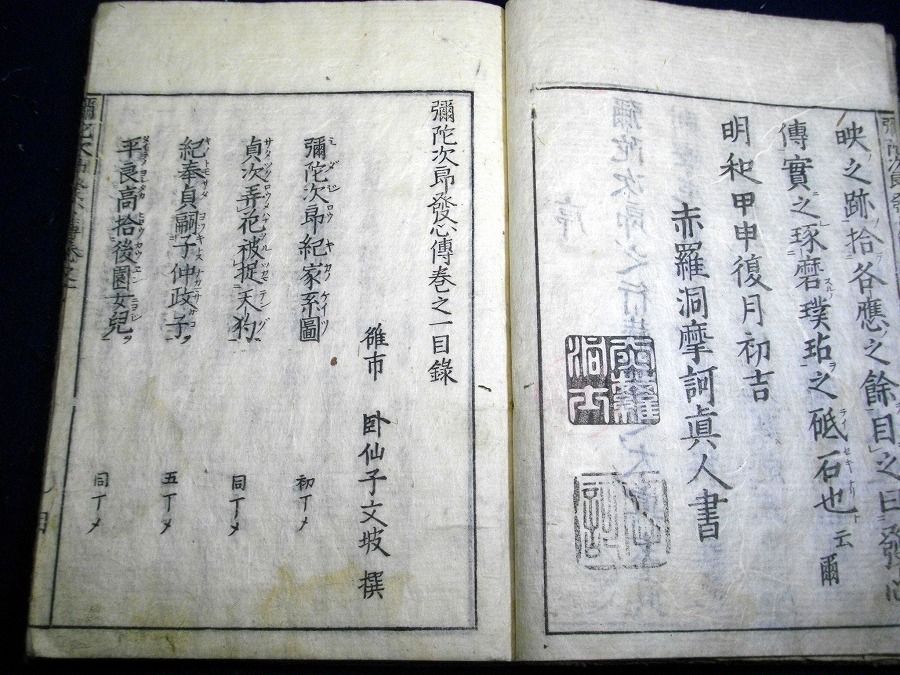 映之跡拾各應之餘目之曰發心
傳實之琢磨璞玷之砥石也云爾
明和甲申復月初吉
赤羅洞摩訶眞人書
彌陀次郎發心傳巻之一目錄
雒市 卧仙子文坡 撰
彌陀次郎紀家系圖 初丁メ
貞次弄花被捉天狗 同丁メ
紀奉貞嗣子仲政子 五丁メ
平良高拾後園女兒 同丁メ